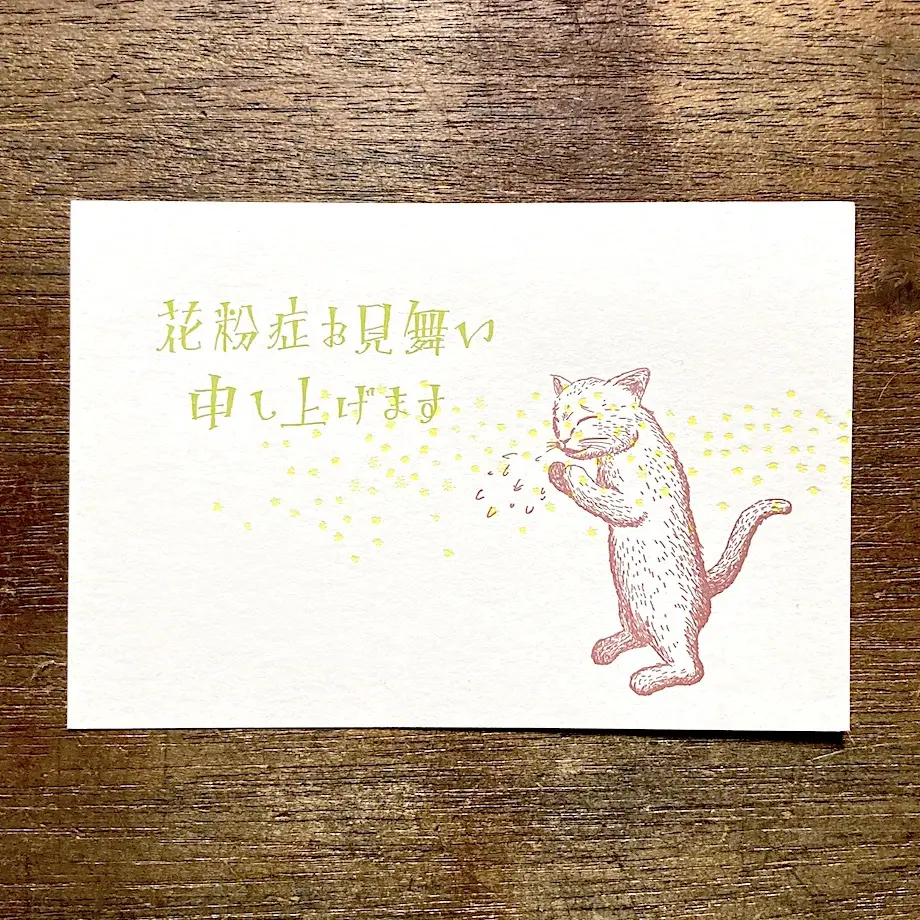 花粉症お見舞い
申し上げます